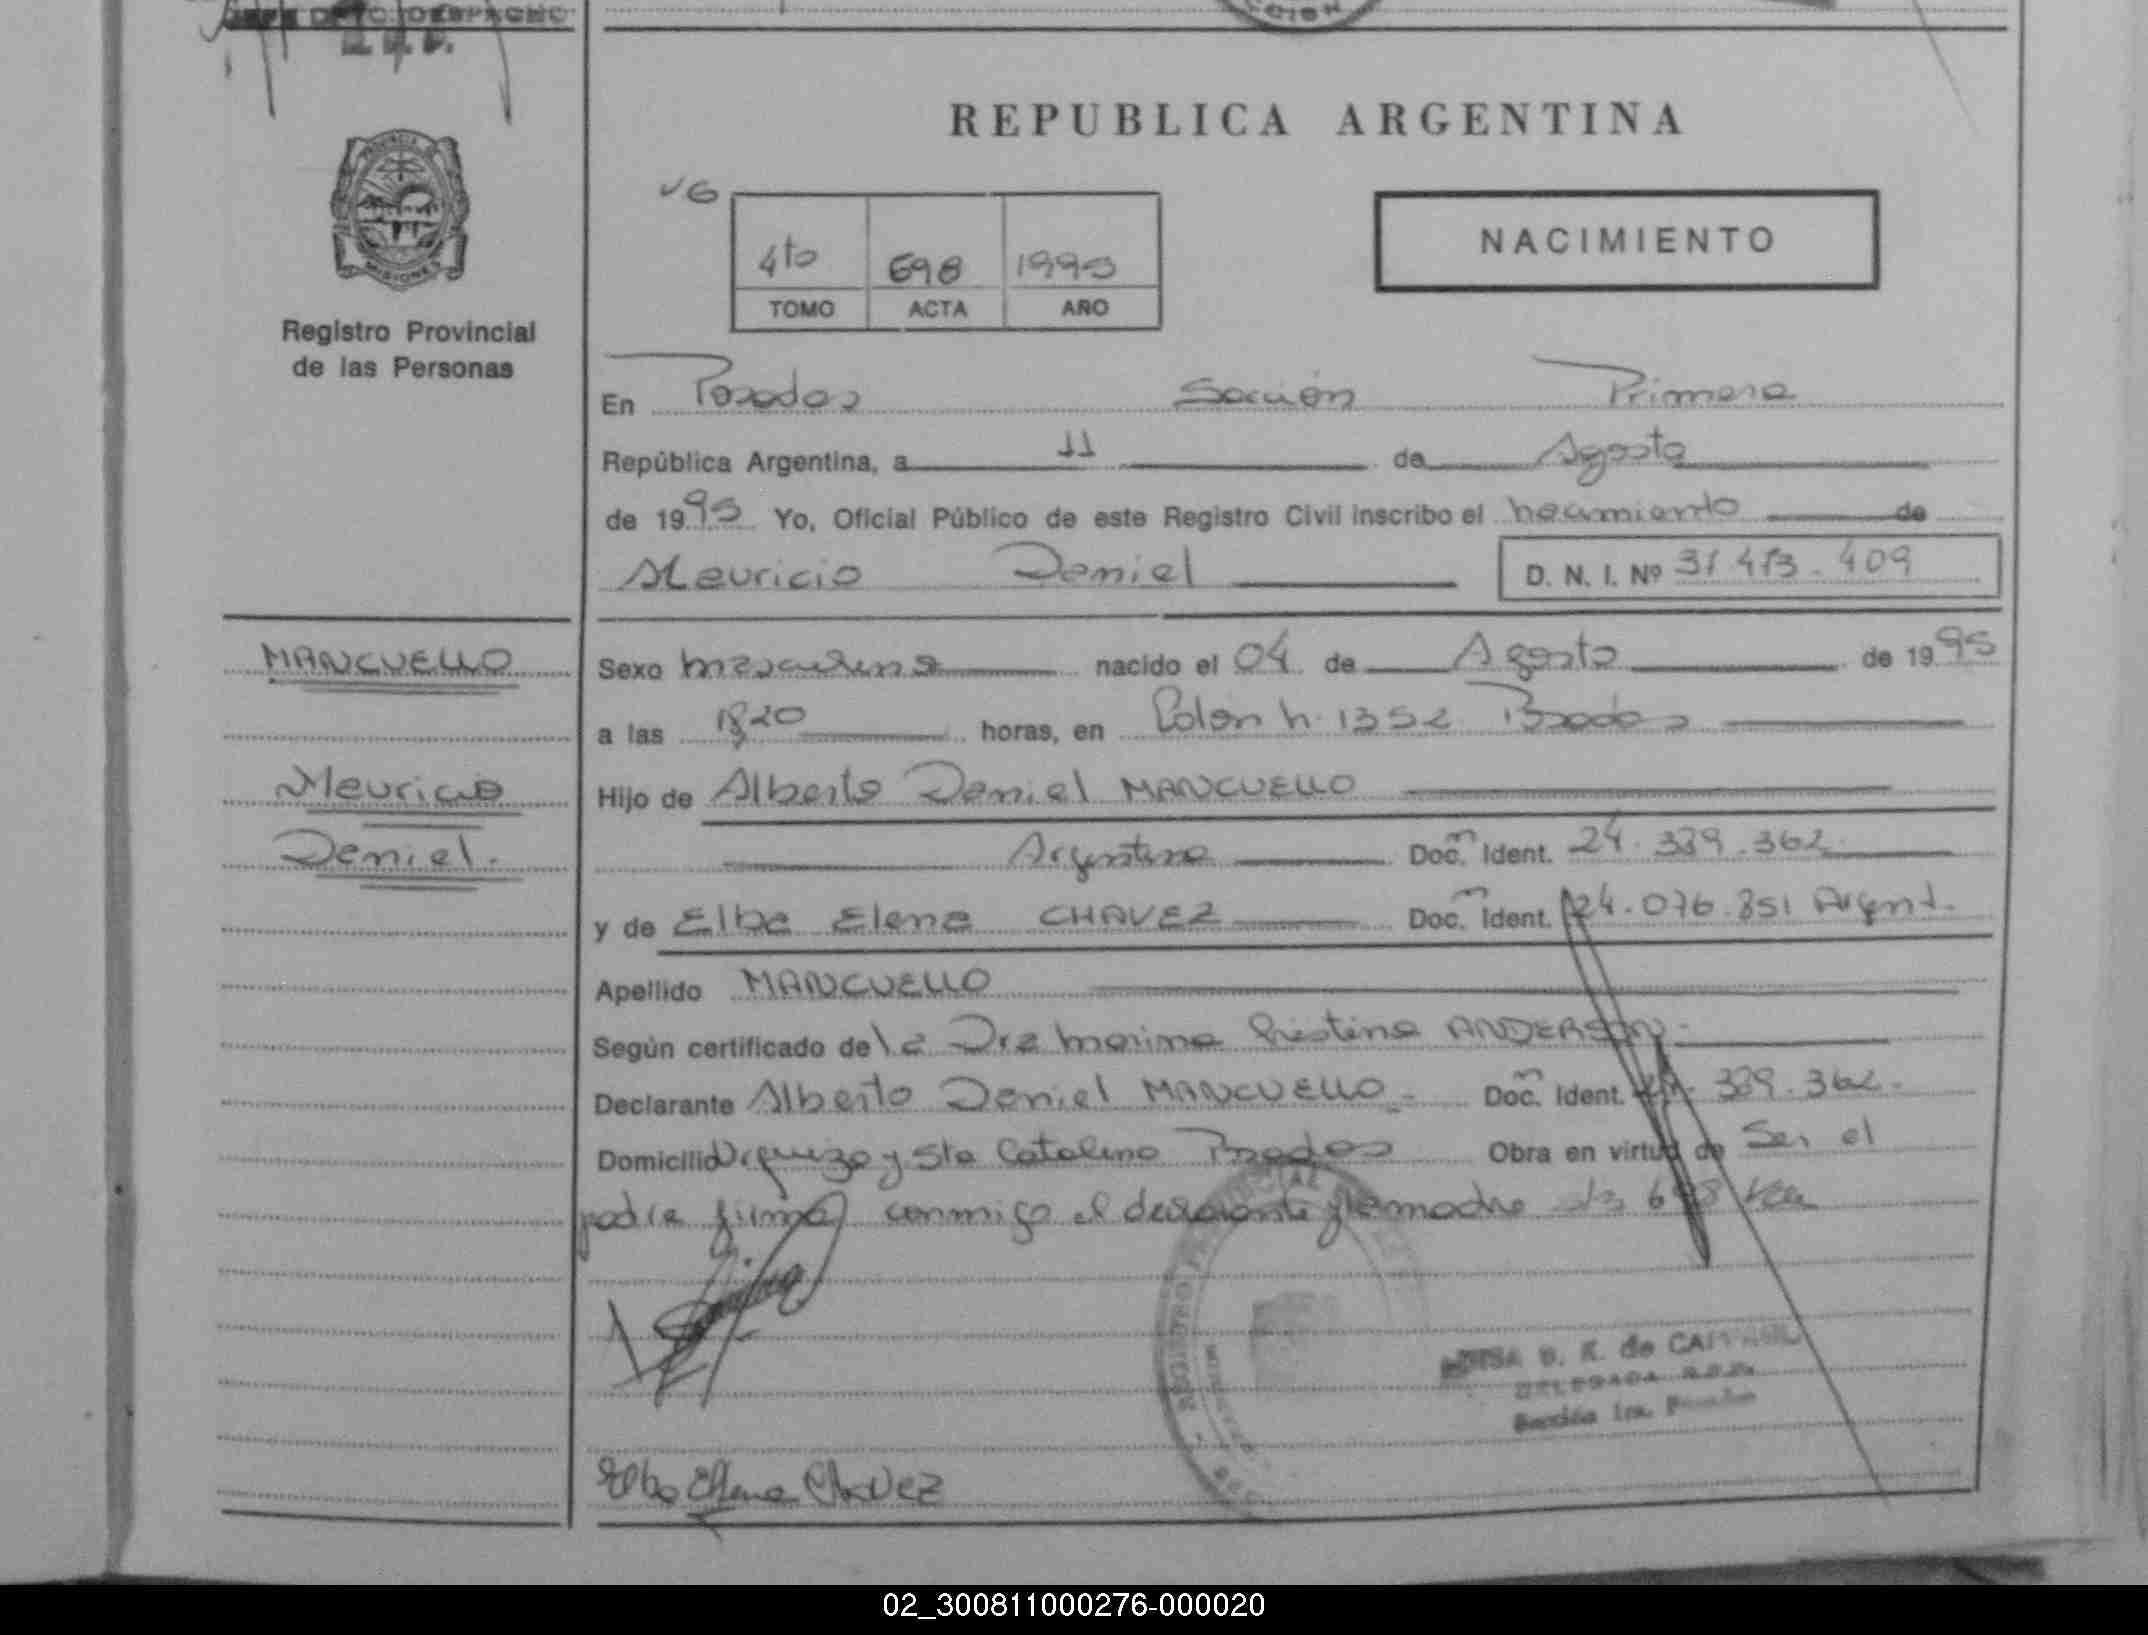 JEFE DPTO. DESPACHO
CCION
REPUBLICA ARGENTINA
PROVINCIA DE
MISIONES
Registro Provincial
de las Personas
NACIMIENTO
4to 698 1995
TOMO ACTA AÑO
En Posadas Sección Primera
República Argentina, a 11 de Agosto
de 1995 Yo, Oficial Público de este Registro Civil inscribo el nacimiento de
Mauricio Daniel D. N. I. Nº 409
MANCUELLO
Mauricio
Daniel.
Sexo masculino nacido el 04 de Agosto de 1995
a las horas, en Colón n. 1352 Posadas
Hijo de Alberto Daniel MANCUELLO
Argentina Doc. Ident. 24.339.362
y de Elba Elena CHAVEZ Doc. Ident. 24.076.851 Argent.
Apellido MANCUELLO
Según certificado de la Dra Marina Cristina ANDERSON
Declarante Alberto Daniel MANCUELLO Doc. Ident. 339.362
Domicilio Urquiza y Sta Catalina Posadas Obra en virtud de Ser el
padre firma conmigo el declarante y la madre 698
REGISTRO PROVINCIAL
de
DELEGADA
Sección 1ra.
Elba Elena Chavez
02_300811000276-000020